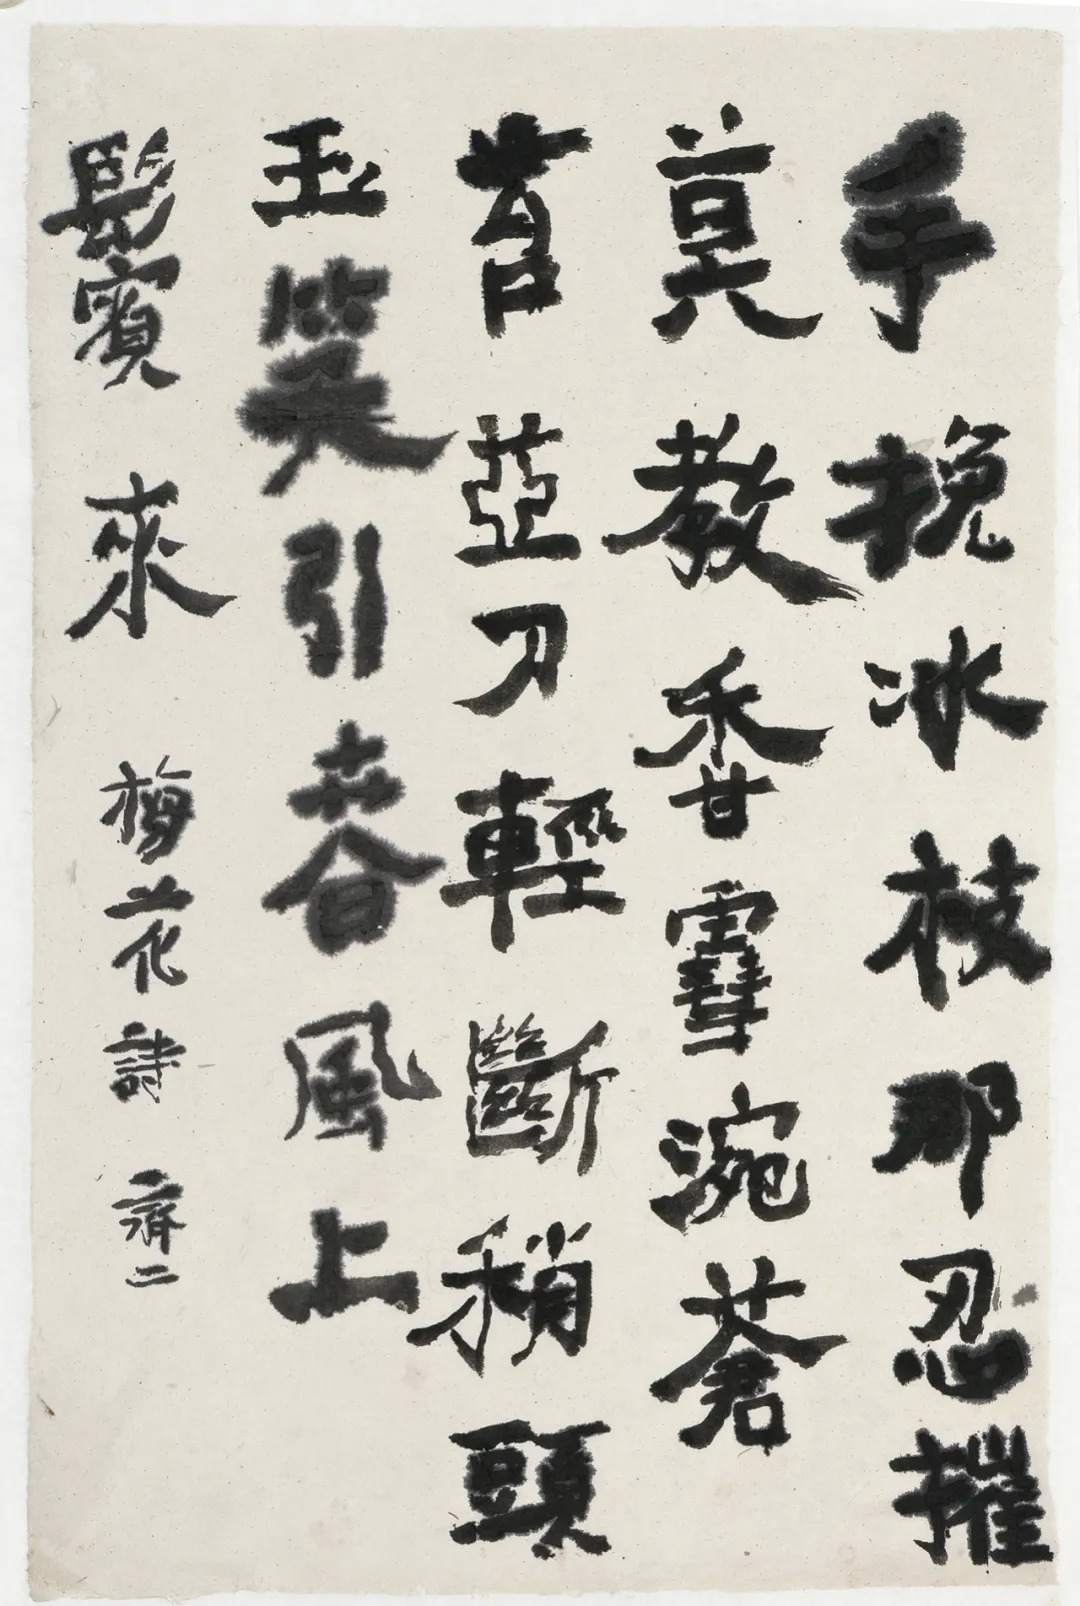 手挽冰枝那忍摧
莫教香雪涴蒼
苔並刀輕斷稍頭
玉笑引春風上
鬢來 梅花詩 齊二